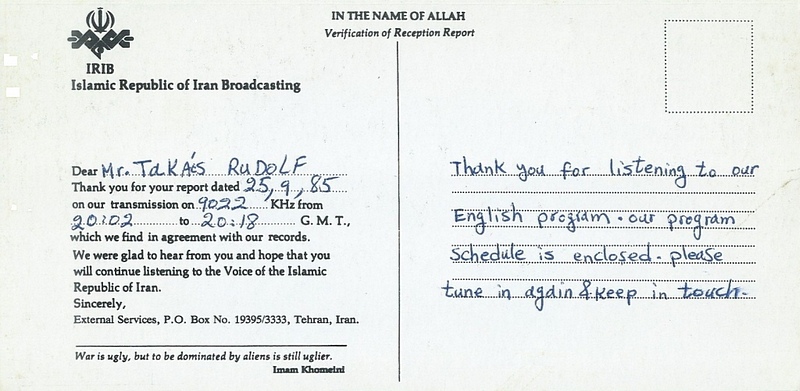 IN THE NAME OF ALLAH
Verification of Reception Report
IRIB
Islamic Republic of Iran Broadcasting
Dear Mr. TaKAćs RuDoLF
Thank you for your report dated 25, 9, 85
on our transmission on 9022 KHz from
20:02 to 20:18 G. M. T.,
which we find in agreement with our records.
We were glad to hear from you and hope that you
will continue listening to the Voice of the Islamic
Republic of Iran.
Sincerely,
External Services, P.O. Box No. 19395/3333, Tehran, Iran.
War is ugly, but to be dominated by aliens is still uglier.
Imam Khomeini
Thank you for listening to our
English program. our program
Schedule is enclosed. please
tune in again & keep in touch.